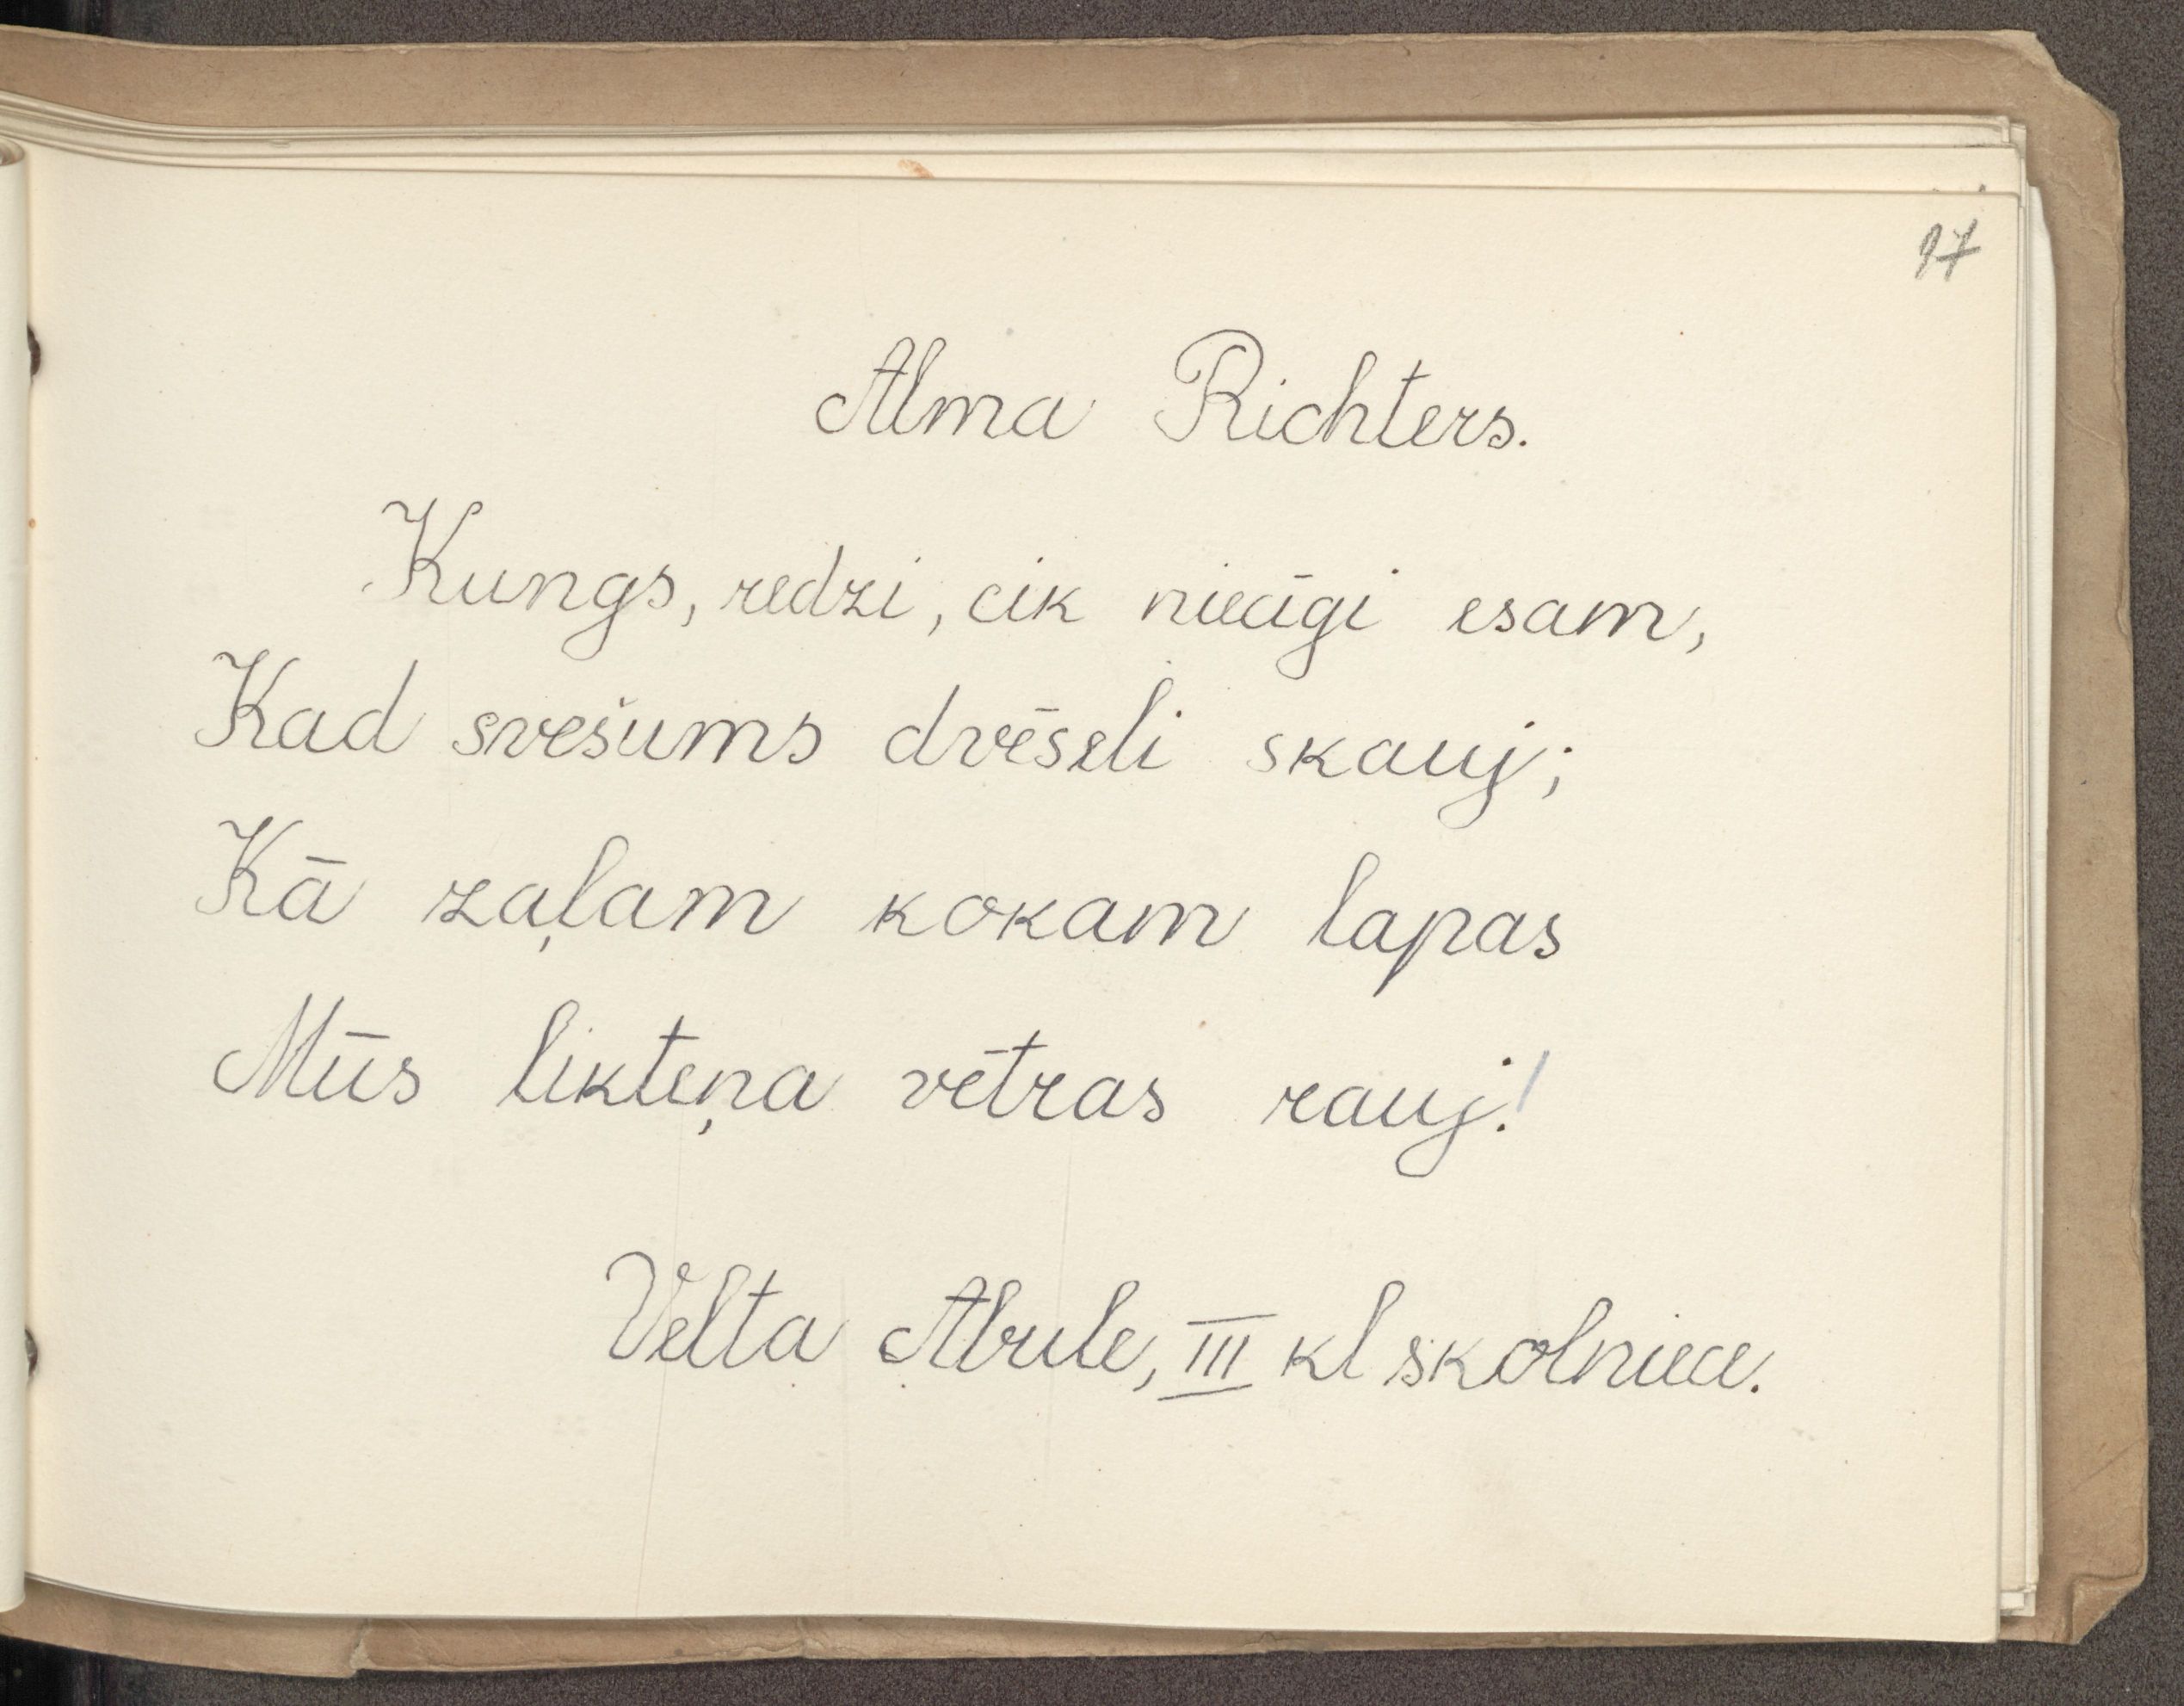 97
Alma Richters.
Kungs, redzi, cik niecīgi esam,
Kad svešums dvēseli skauj;
Kā zaļam kokam lapas
Mūs likteņa vētras rauj!
Velta Abule, III kl skolniece.